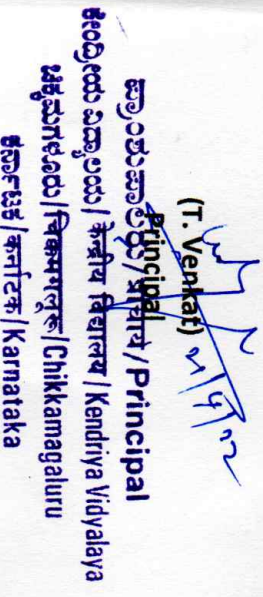 (T. Venkat)
Principal
ಪ್ರಾಂಶುಪಾಲರು / प्राचार्य / Principal
ಕೇಂದ್ರೀಯ ವಿದ್ಯಾಲಯ / केन्द्रीय विद्यालय / Kendriya Vidyalaya
ಚಿಕ್ಕಮಗಳೂರು / चिक्कमगलूरु / Chikkamagaluru
ಕರ್ನಾಟಕ / कर्नाटक / Karnataka